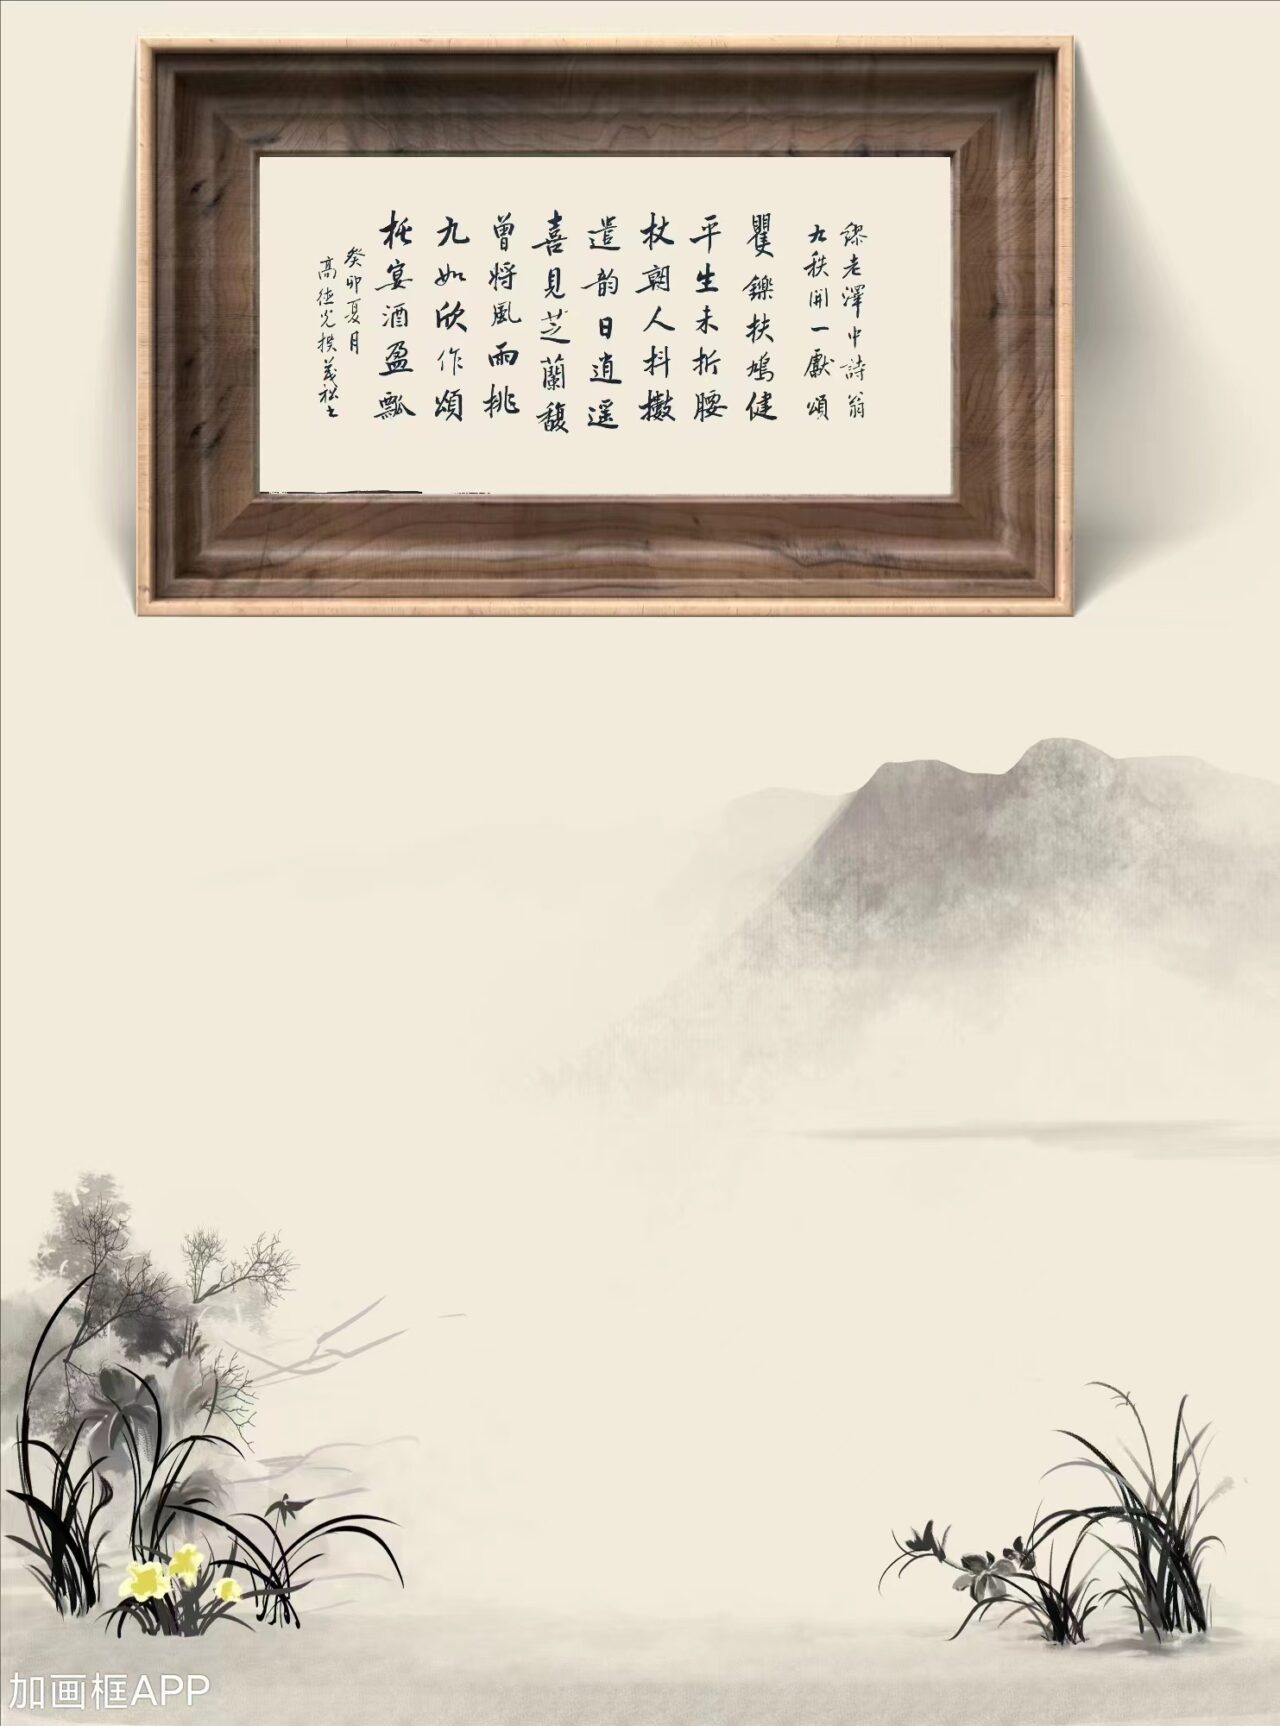 繆老澤中詩翁
九秩開一獻頌
矍鑠扶鳩健
平生未折腰
杖朝人抖擻
遣韵日逍遥
喜見芝蘭馥
曾將風雨挑
九如欣作頌
祝宴酒盈瓢
癸卯夏月
高德光撰
加画框APP